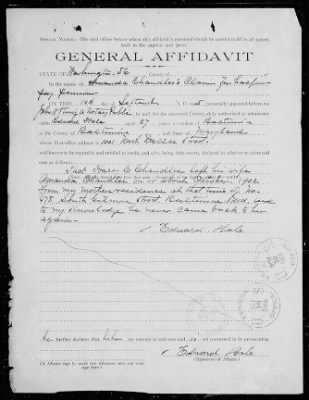 SPECIAL NOTICE.—The civil officer before whom this affidavit is executed should be careful to fill in all spaces,
both in the caption and jurat.
GENERAL AFFIDAVIT
STATE OF Washington, D.C. County of
In the matter of Amanda Chandler's Claim for half
pay pension
ON THIS 14th day of September personally appeared before
me a Notary Public in and for the aforesaid County, duly authorized to administer
oaths Edward Hole aged 57 years, a resident of Baltimore
in the County of Baltimore and State of Maryland
whose Post-office address is 1001 North Dallas Street
well known to me to be reputable and entitled to credit, and who, being duly sworn, declared in relation to aforesaid
case, as follows:
That Henry C Chandler left his wife
Amanda Chandler on or about October 1902
from my mother residence at that time of No.
578 South Street Baltimore Md, and
to my knowledge he never came back to her
again.
Edward Hole
he further declares that he has no interest in said case and is not concerned in its prosecution.
Edward Hole
(Signature of Affiant.)
(If Affiant signs by mark two witnesses who can write
sign here.)